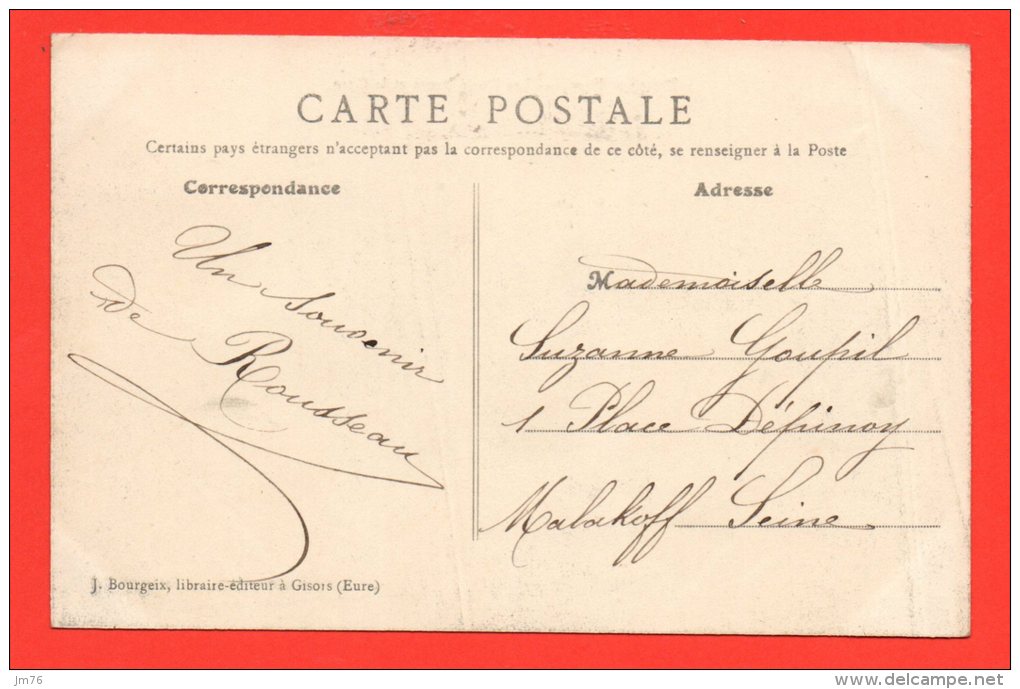 CARTE POSTALE
Certains pays étrangers n'acceptant pas la correspondance de ce côté, se renseigner à la Poste
Correspondance
Un Souvenir
de Rousseau
J. Bourgeix, libraire-éditeur à Gisors (Eure)
Adresse
Mademoiselle
Suzanne Goupil
1 Place Dépinoy
Malakoff Seine
jm76
delcampe.net